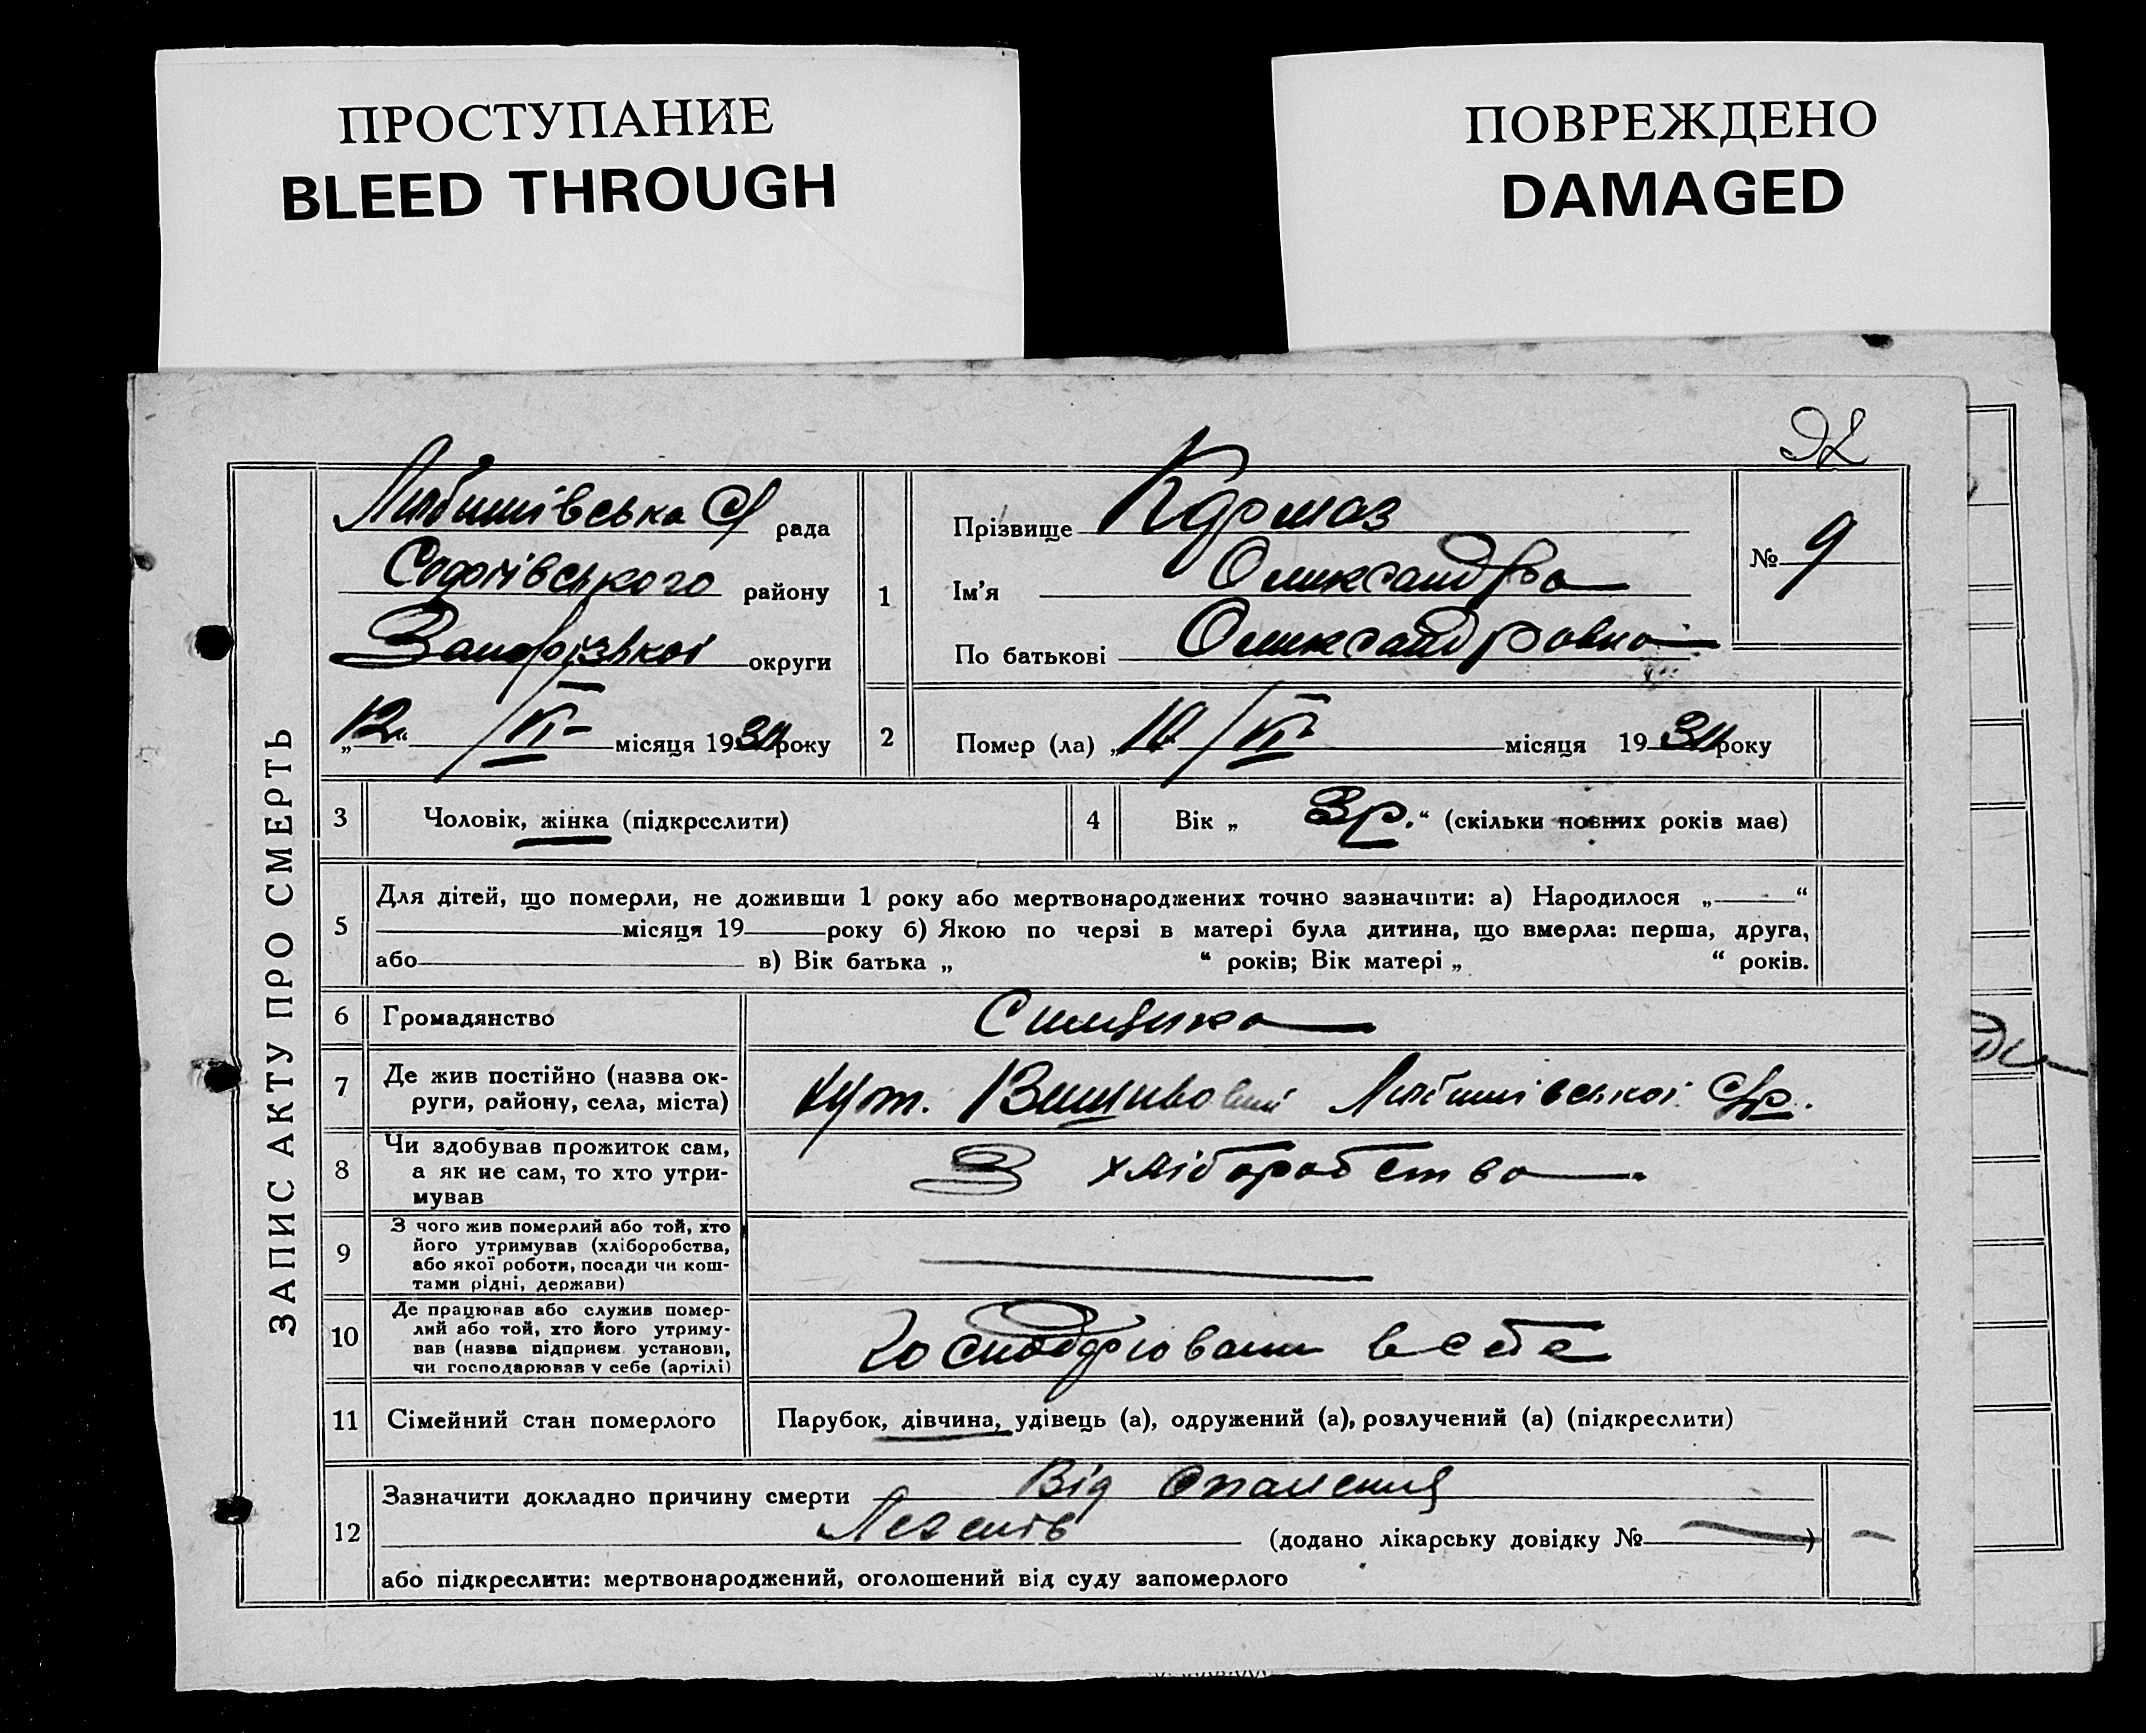 ПРОСТУПАНИЕ
BLEED THROUGH
ПОВРЕЖДЕНО
DAMAGED
92
ЗАПИС АКТУ ПРО СМЕРТЬ
Любимівська С/ рада
Софіївського району
Запорізької округи
„12“ /VI місяця 1930 року
1
Прізвище Кармаз
Ім'я Олександра
По батькові Олександровна
№ 9
2 Помер (ла) „10 /VI місяця 1930 року
3 Чоловік, жінка (підкреслити)
4 Вік „ 3р. “ (скільки повних років має)
5 Для дітей, що померли, не доживши 1 року або мертвонароджених точно зазначити: а) Народилося „ “
місяця 19 року б) Якою по черзі в матері була дитина, що вмерла: перша, друга,
або в) Вік батька „ “ років; Вік матері „ “ років.
6 Громадянство
7 Де жив постійно (назва ок-
руги, району, села, міста)
хут. Любимівської С/р.
8 Чи здобував прожиток сам,
а як не сам, то хто утри-
мував
З хліборобства
9 З чого жив померлий або той, хто
його утримував (хліборобства,
або якої роботи, посади чи кош-
тами рідні, держави)
10 Де працював або служив помер-
лий або той, хто його утриму-
вав (назва підприєм. установи,
чи господарював у себе (артілі)
господарювали в себе
11 Сімейний стан померлого
Парубок, дівчина, удівець (а), одружений (а), розлучений (а) (підкреслити)
12 Зазначити докладно причину смерти Від спаления
Легенів (додано лікарську довідку № )
або підкреслити: мертвонароджений, оголошений від суду запомерлого